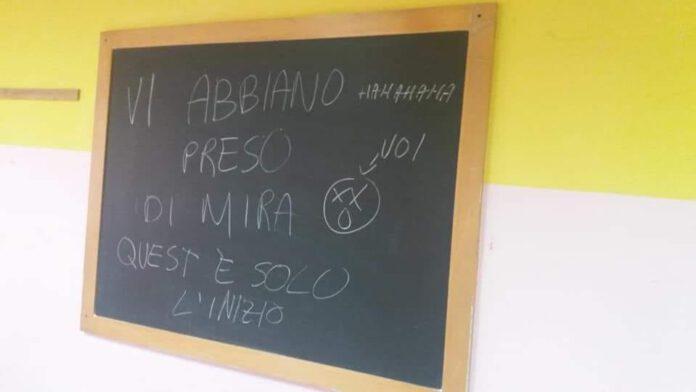 VI ABBIANO HAHAHAHA
PRESO
VOI
DI MIRA
QUEST È SOLO
L'INIZIO